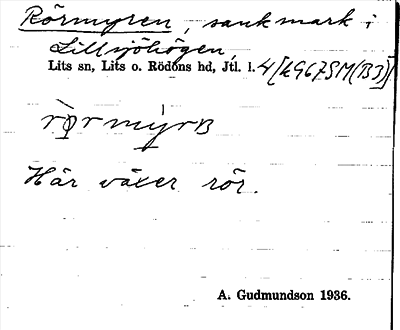 Rörmyren, sank mark i
Lillsjöhögen,
Lits sn, Lits o. Rödöns hd, Jtl. l. 4
Här växer rör.
A. Gudmundson 1936.